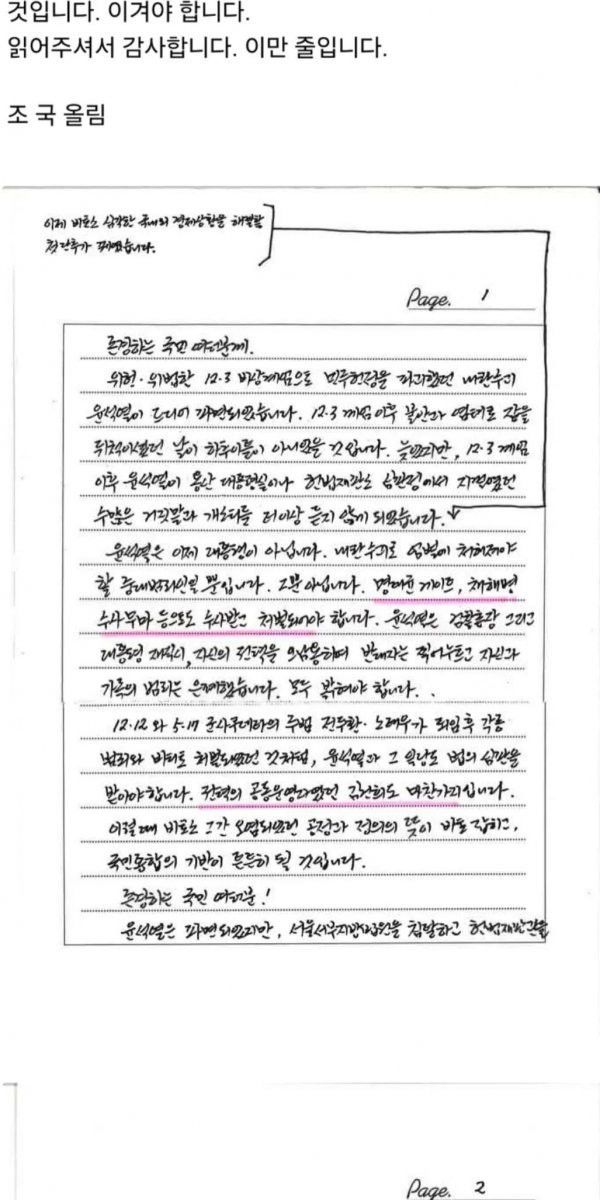 것입니다. 이겨야 합니다.
읽어주셔서 감사합니다. 이만 줄입니다.
조 국 올림
이제 비로소 심각한 국내외 경제상황을 해결할
첫 단추가 끼워졌습니다.
Page. 1
존경하는 국민 여러분께.
위헌·위법한 12.3 비상계엄으로 민주헌정을 파괴했던 내란수괴
윤석열이 드디어 파면되었습니다. 12.3 계엄 이후 불안과 염려로 잠을
뒤척이셨던 날이 하루이틀이 아니었을 것입니다. 늦었지만, 12.3 계엄
이후 윤석열이 용산 대통령실이나 헌법재판소 심판정에서 지껄였던
수많은 거짓말과 개소리를 더이상 듣지 않게 되었습니다.
윤석열은 이제 대통령이 아닙니다. 내란수괴로 엄벌에 처해져야
할 중대범죄인일 뿐입니다. 그뿐 아닙니다. 명태균 게이트, 채해병
수사무마 등으로도 수사받고 처벌되어야 합니다. 윤석열은 검찰총장 그리고
대통령 재직시, 자신의 권력을 오남용하며 반대자는 찍어누르고 자신과
가족의 범죄는 은폐했습니다. 모두 밝혀야 합니다.
12.12와 5.17 군사쿠데타의 주범 전두환·노태우가 퇴임 후 각종
범죄와 비리로 처벌되었던 것처럼, 윤석열과 그 일당도 법의 심판을
받아야 합니다. 권력의 공동운영자였던 김건희도 마찬가지입니다.
이럴 때 비로소 그간 오염되었던 공정과 정의의 뜻이 바로 잡히고,
국민통합의 기반이 튼튼히 될 것입니다.
존경하는 국민 여러분!
윤석열은 파면되었지만, 서울서부지방법원을 침탈하고 헌법재판관을
Page. 2